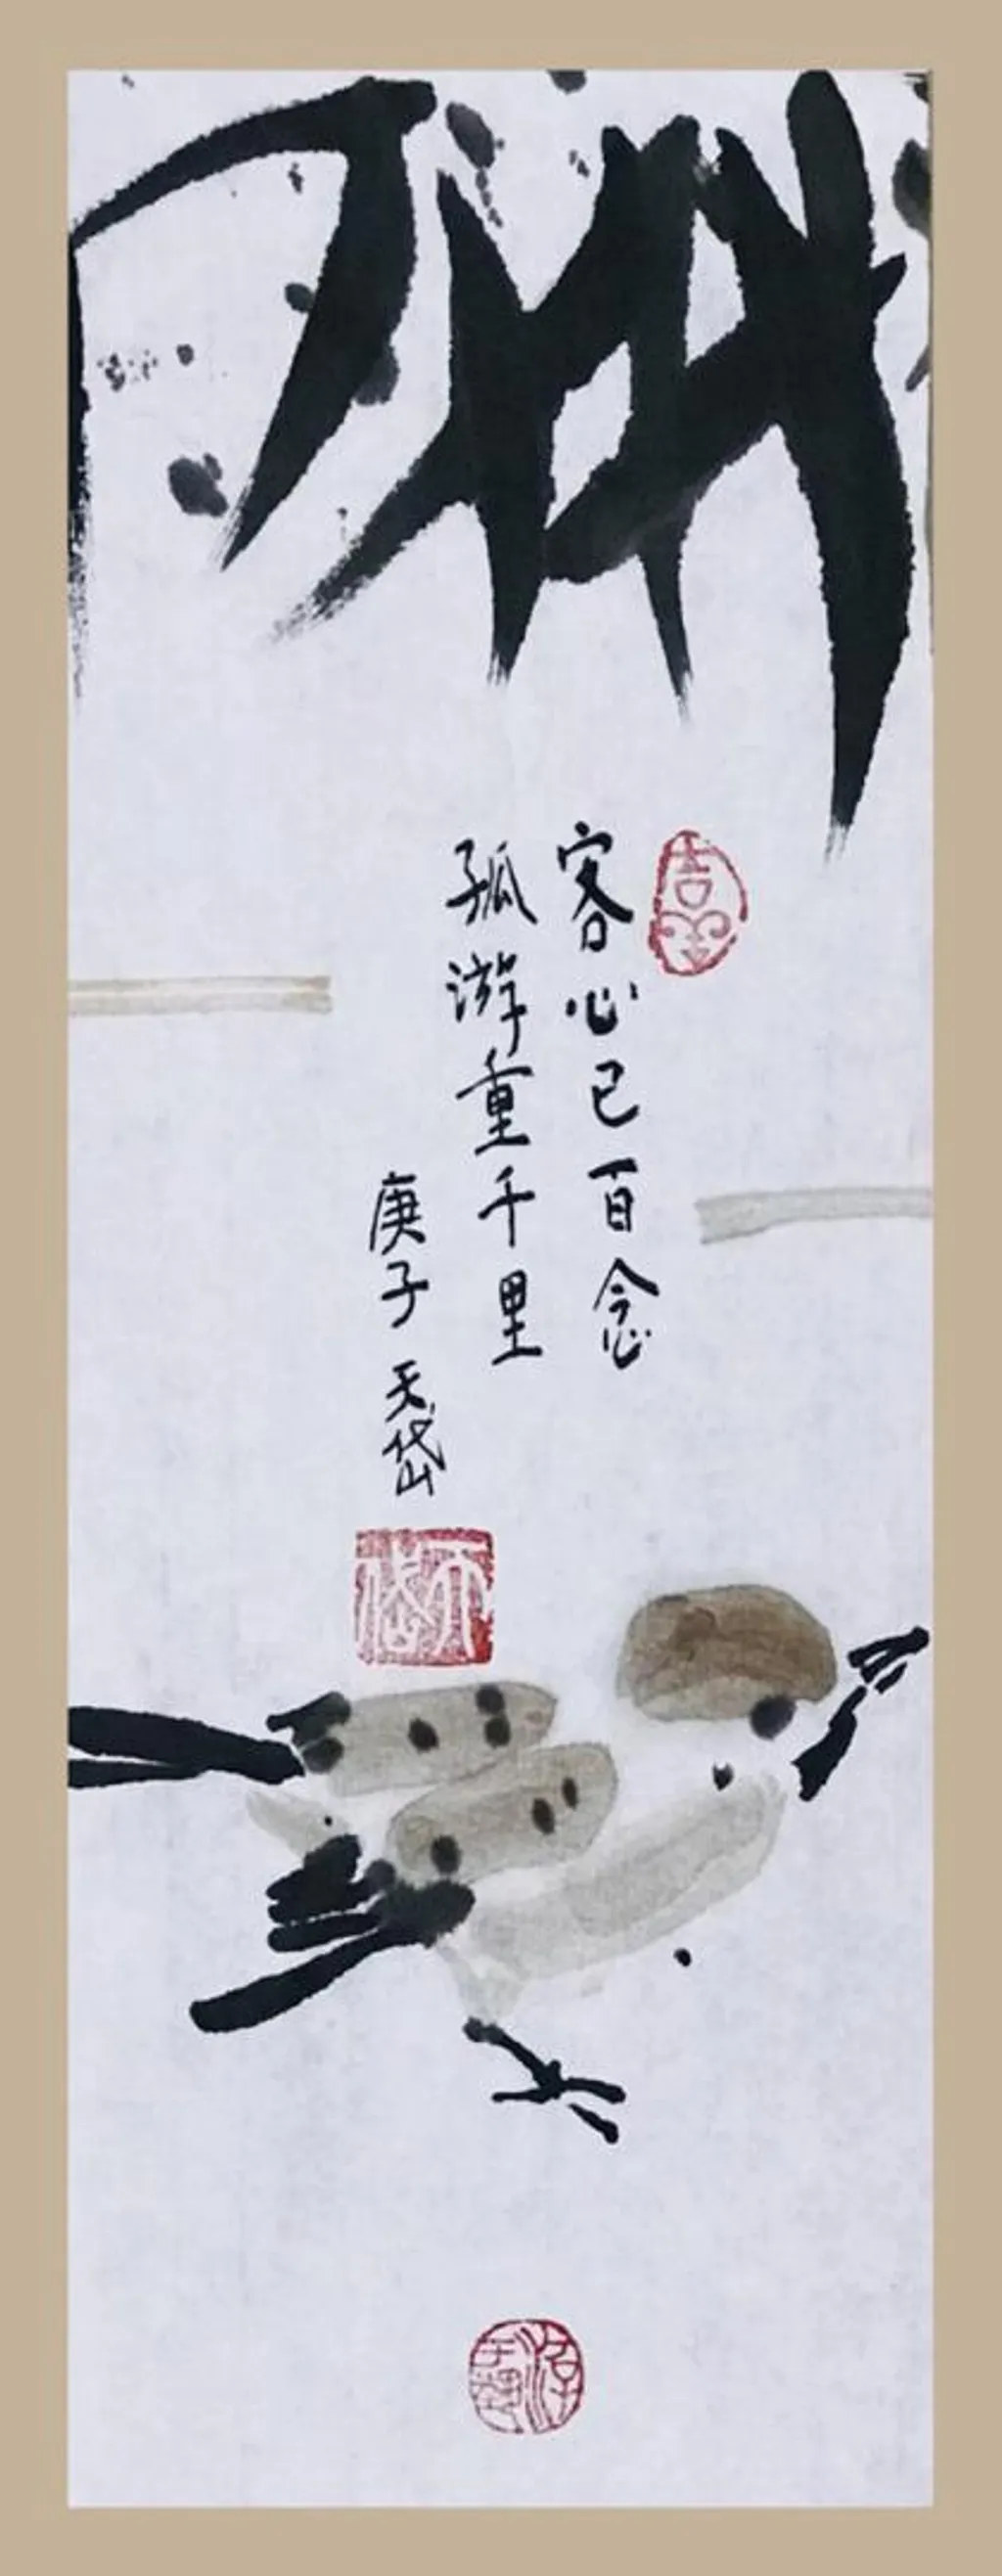 客心已百念
孤游重千里
庚子 天岱
天岱